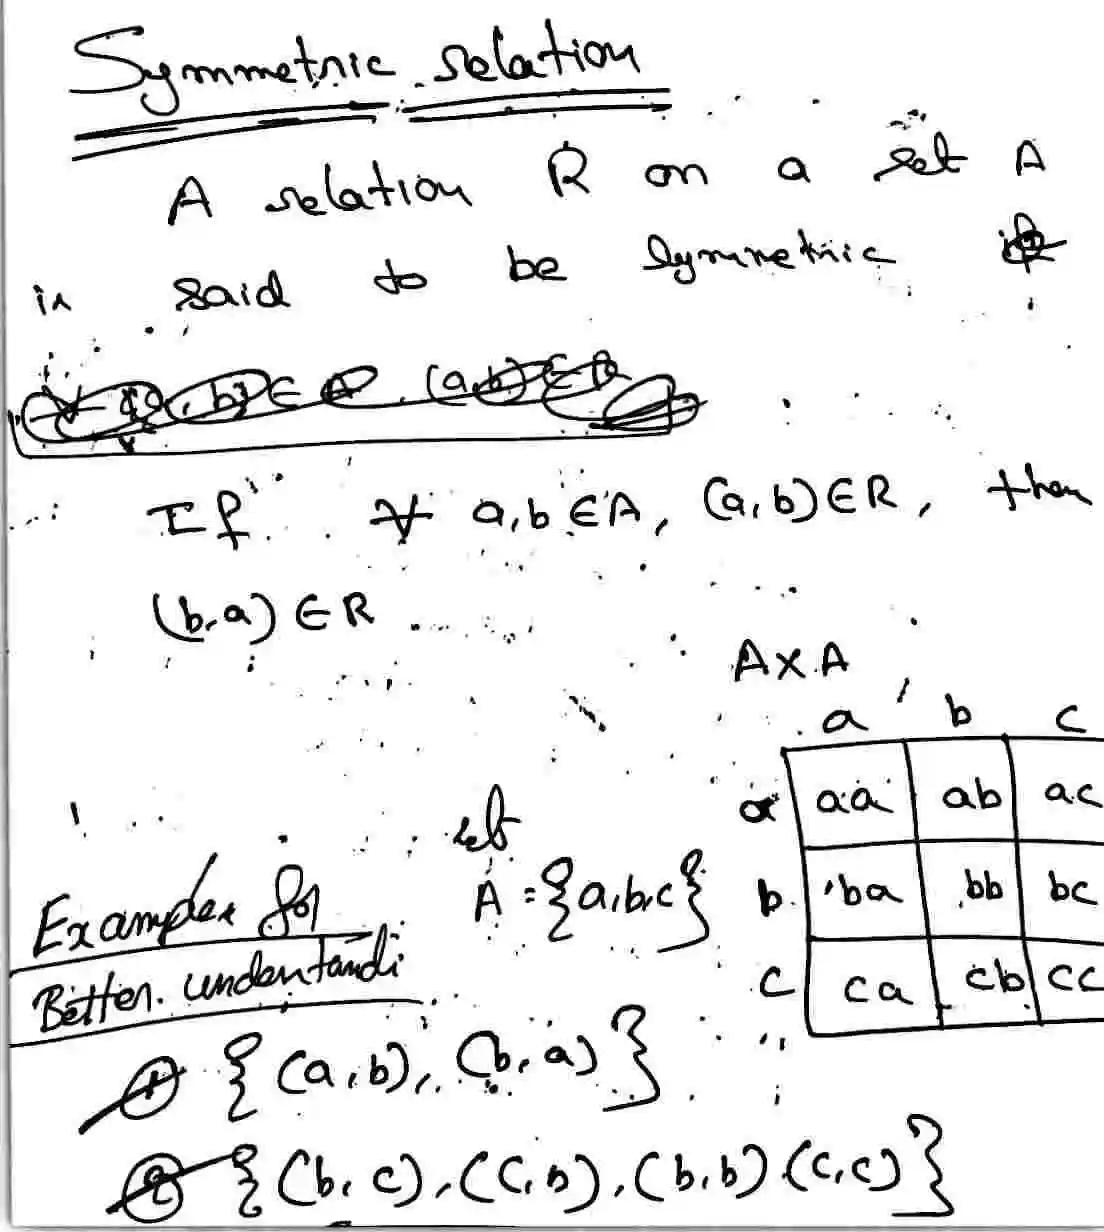 Symmetric relation
A relation R on a set A
is said to be symmetric if
∀ a, b ∈ A, (a,b) ∈ R
If ∀ a,b ∈ A, (a,b) ∈ R, then
(b,a) ∈ R
A×A
a b c
a aa ab ac
b ba bb bc
c ca cb cc
set
A = {a,b,c}
Examples for
Better understandi
① {(a,b), (b,a)}
② {(b,c), (c,b), (b,b) (c,c)}